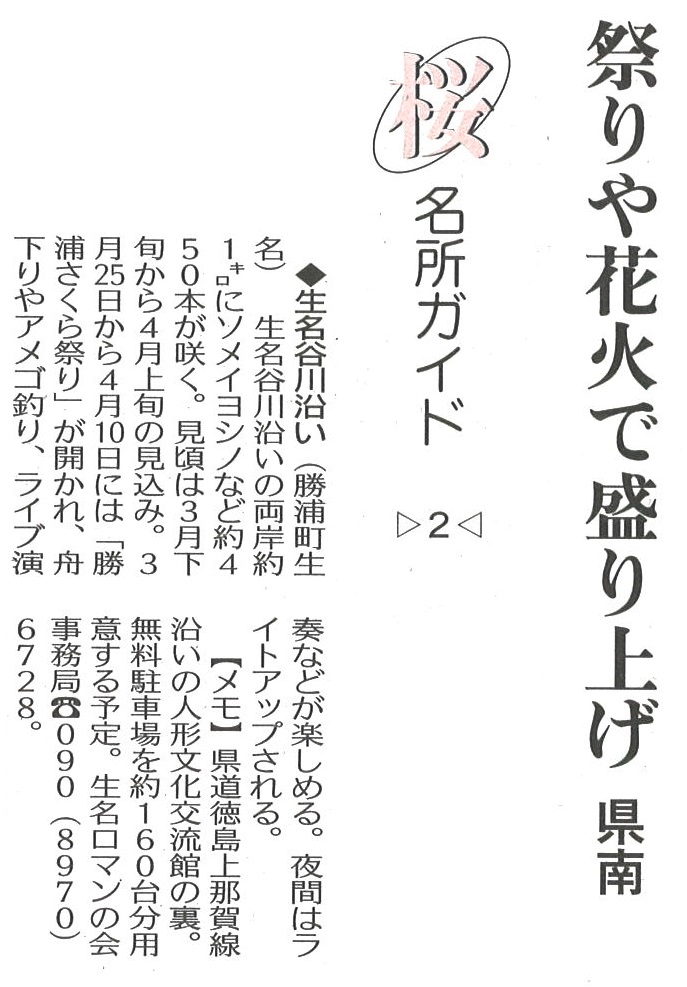 祭りや花火で盛り上げ 県南
桜 名所ガイド ▷2◁
◆生名谷川沿い（勝浦町生
名） 生名谷川沿いの両岸約
1㌔にソメイヨシノなど約4
50本が咲く。見頃は3月下
旬から4月上旬の見込み。3
月25日から4月10日には「勝
浦さくら祭り」が開かれ、舟
下りやアメゴ釣り、ライブ演
奏などが楽しめる。夜間はラ
イトアップされる。
【メモ】県道徳島上那賀線
沿いの人形文化交流館の裏。
無料駐車場を約160台分用
意する予定。生名ロマンの会
事務局☎090（8970）
6728。